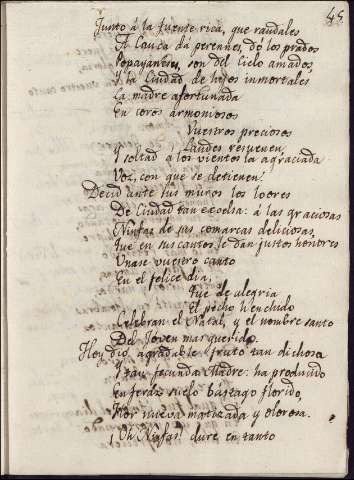 45
Junto á la fuente rica, que raudales
A Cauca dá perennes, dó los prados
Popayaneses, son del Cielo amados,
Y la Ciudad de hijos inmortales
La madre afortunada
En coros armoniosos
Vuestros preciosos
Laudes resuenen,
Y soltad á los vientos la agraciada
Voz, con que se detienen.
Decid ante sus muros los loores
De Ciudad tan excelsa: á las graciosas
Ninfas de sus comarcas deliciosas,
Que en sus cantos le dan justos honores
Unase vuestro canto
En el felice dia,
Que de alegria
El pecho henchido
Celebran el Natal, y el nombre santo
Del Joven mas querido.
Hoy dió agradable fruto tan dichosa
Y tan fecunda Madre: ha producido
En feráz suelo bástago florido,
Flor nueva matizada y olorosa.
¡Oh Ninfas! dure en tanto